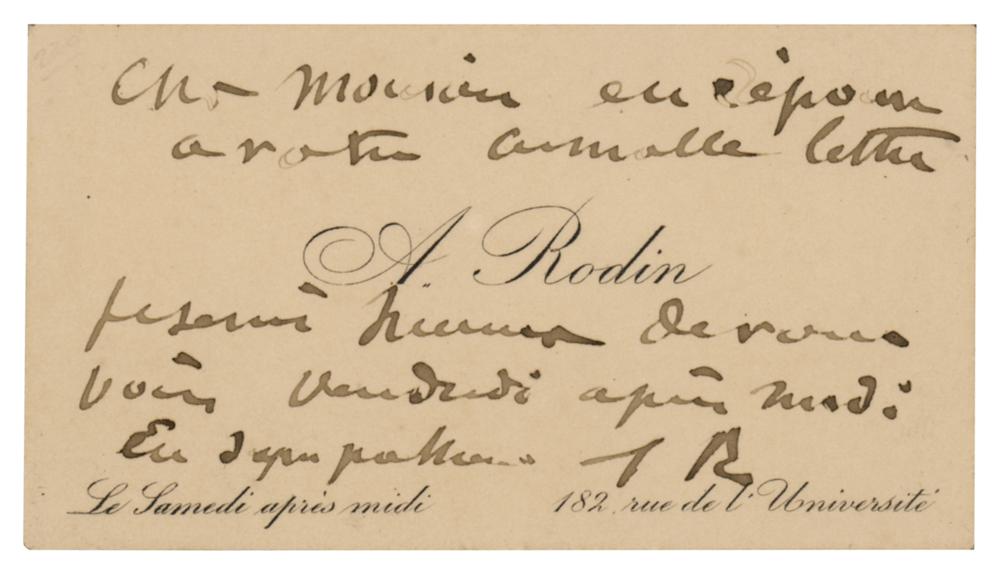 Ch Monsieur en réponse
a votre aimable lettre
A Rodin
je serai heureux de vous
voir vendredi après midi
En sympathie A R
Le Samedi après midi
182 rue de l'Université